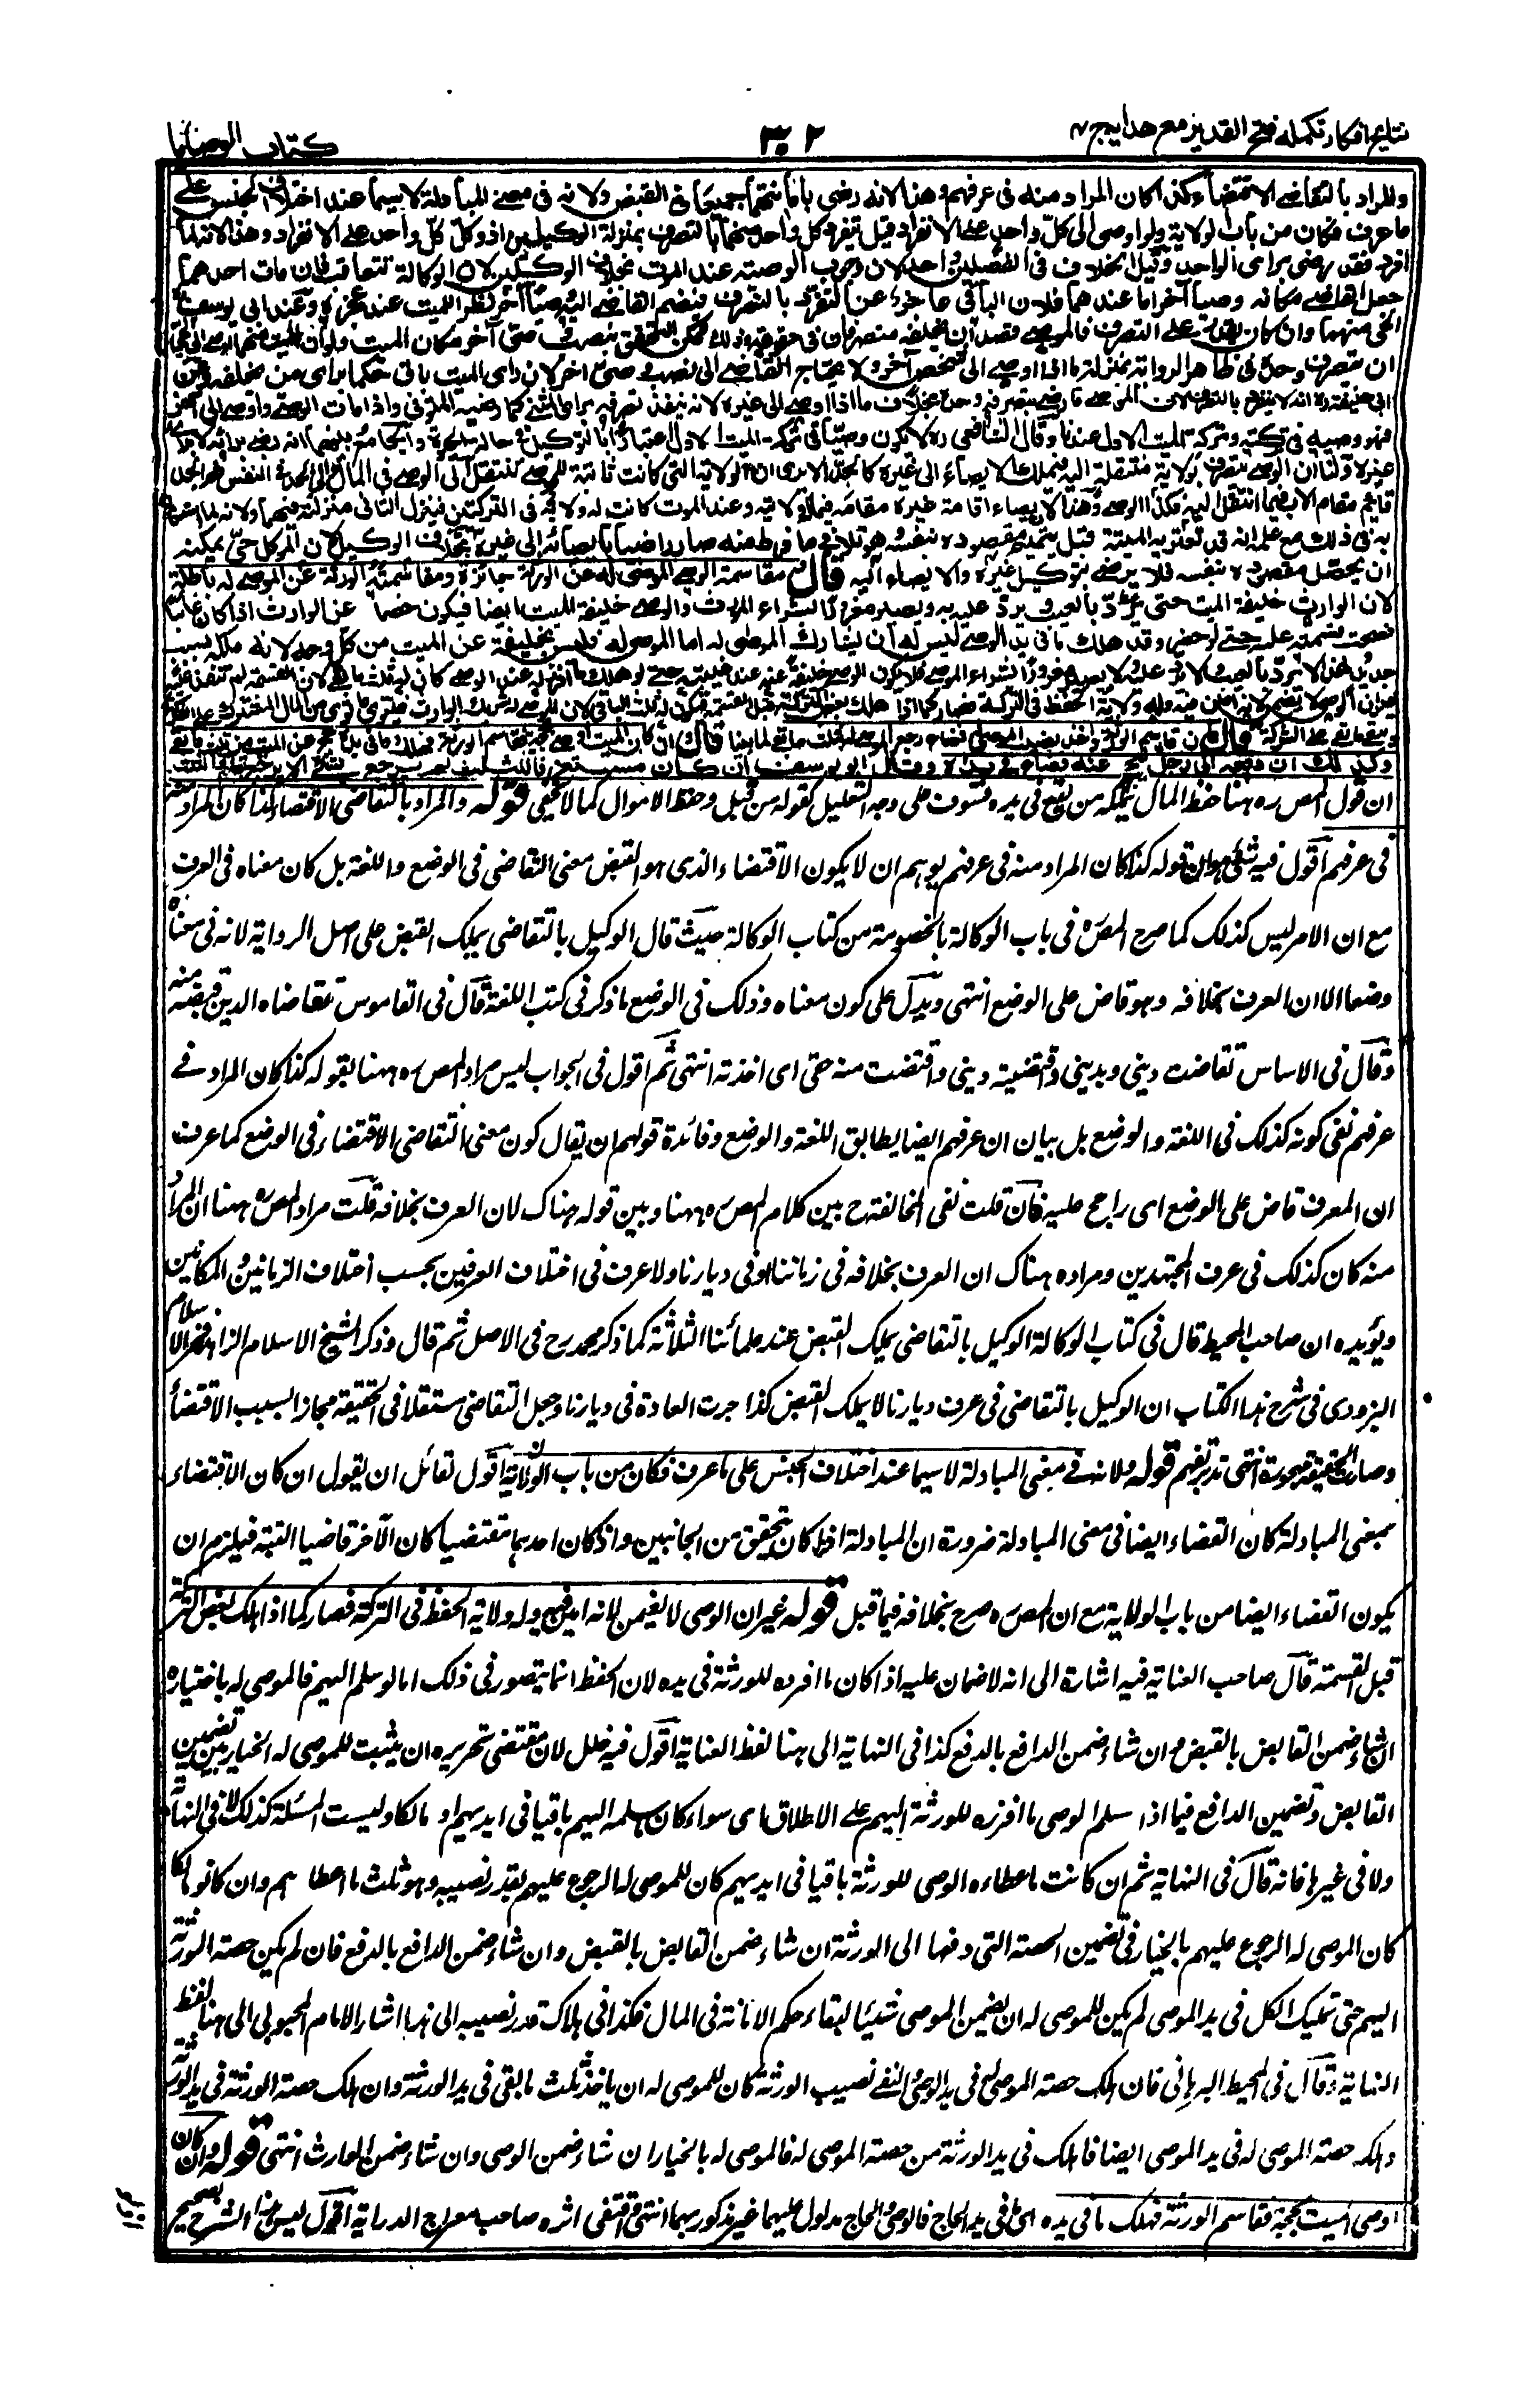 نتائج افكار تكمله فتح القدير مع هدايه ج ٤
٣٠٢
كتاب الوصايا
والمراد بالتقاضي الاقتضاء كذا كان المراد منه في عرفهم وهذا لانه رضي بامانتهما جميعا في القبض ولانه في معنى المبادلة لا سيما عند اختلاف الجنس على
ما عرف فكان من باب الولاية ولو اوصى الى كل واحد على الانفراد قيل يتفرد كل واحد منهما بالتصرف بمنزلة الوكيلين اذا وكل كل واحد على الانفراد وهذا لانه لما
افرد فقد رضي براي الواحد وقيل الخلاف في الفصلين واحد لان وجوب الوصية عند الموت بخلاف الوكيلين لان الوكالة تتعاقب فان مات احدهما
جعل القاضي مكانه وصيا آخر اما عندهما فلان الباقي عاجز عن التفرد بالتصرف فيضم القاضي اليه وصيا آخر نظرا للميت عند عجزه وعند ابي يوسف
الحي منهما وان كان يقدر على التصرف فالموصي قصد ان يخلفه متصرفان في حقوقه وذلك ممكن التحقق بنصب وصي آخر مكان الميت ولو ان الميت منهما اوصى الى الحي
ان يتصرف وحده في ظاهر الرواية بمنزلة ما اذا اوصى الى شخص آخر ولا يحتاج القاضي الى نصب وصي آخر لان راي الميت باق حكما براي من يخلفه وعن
ابي حنيفة ره انه لا ينفرد بالتصرف لان الموصي ما رضي بتصرفه وحده بخلاف ما اذا اوصى الى غيره لانه ينفذ تصرفه براي المثنى كما رضيه المتوفى واذا مات الوصي واوصى الى آخر
فهو وصيه في تركته وتركة الميت الاول عندنا وقال الشافعي ره لا يكون وصيا في تركة الميت الاول اعتبارا بالتوكيل في حالة الحيوة والجامع بينهما انه رضي برايه لا براي
غيره ولنا ان الوصي يتصرف بولاية منتقلة اليه فيملك الايصاء الى غيره كالجد الا يرى ان الولاية التي كانت ثابتة للموصي تنتقل الى الوصي في المال والى الجد في النفس ثم الجد
قائم مقام الاب فيما انتقل اليه فكذا الوصي وهذا لان الايصاء اقامة غيره مقامه فيما له ولايته وعند الموت كانت له ولاية في التركتين فينزل الثاني منزلته فيهما ولانه لما استعان
به في ذلك مع علمه انه قد تعتريه المنية قبل تتميم مقصوده بنفسه وهو تلافي ما فرط منه صار راضيا بايصائه الى غيره بخلاف الوكيل لان الموكل حي يمكنه
ان يحصل مقصوده بنفسه فلا يرضى بتوكيل غيره والايصاء اليه قال مقاسمة الوصي الموصى له عن الورثة جائزة ومقاسمته الورثة عن الموصى له باطلة
لان الوارث خليفة الميت حتى يرد بالعيب ويرد عليه به ويصير مغرورا بشراء المورث والوصي خليفة الميت ايضا فيكون خصما عن الوارث اذا كان غائبا
فصحت قسمته عليه حتى لو حضر وقد هلك ما في يد الوصي ليس له ان يشارك الموصى له اما الموصى له فليس بخليفة عن الميت من كل وجه لانه ملكه بسبب
جديد ولهذا لا يرد بالعيب ولا يرد عليه ولا يصير مغرورا بشراء الموصي فلا يكون الوصي خليفة عنه عند غيبته حتى لو هلك ما افرز له عند الوصي كان له ثلث ما بقي لان القسمة لم تنفذ عليه
غير ان الوصي لا يضمن لانه امين فيه وله ولاية الحفظ في التركة فصار كما اذا هلك بعض التركة قبل القسمة فيكون له ثلث الباقي لان الموصى له شريك الوارث فيتوى ما توى من المال المشترك على الشركة
ويبقى ما بقي على الشركة قال فان قاسم الورثة واخذ نصيب الموصى له فضاع رجع الموصى له بثلث ما بقي لما بينا قال وان كان الميت اوصى بحجة فقاسم الورثة فهلك ما في يده حج عن الميت من ثلث ما بقي
وكذلك ان دفعه الى رجل ليحج عنه فضاع في يده وقال ابو يوسف ان كان مستغرقا للثلث لم يرجع بشئ والا يرجع بتمام الثلث
ان قول المص ره هنا حفظ المال يملكه من يقع في يده مسوق على وجه التعليل كقوله من قبل وحفظ الاموال كما لا يخفى قوله والمراد بالتقاضي الاقتضاء كذا كان المراد منه
في عرفهم اقول فيه شئ وهو ان قوله كذا كان المراد منه في عرفهم يوهم ان لا يكون الاقتضاء الذي هو القبض معنى التقاضي في الوضع واللغة بل كان معناه في العرف
مع ان الامر ليس كذلك كما صرح المص ره في باب الوكالة بالخصومة من كتاب الوكالة حيث قال الوكيل بالتقاضي يملك القبض على اصل الرواية لانه في معناه
وضعا الا ان العرف بخلافه وهو قاض على الوضع انتهى ويدل على كون معناه وذلك في الوضع ما ذكر في كتب اللغة قال في القاموس تقاضاه الدين قبضه منه
وقال في الاساس تقاضيت ديني وبديني واقتضيته ديني واقتضيت منه حقي اي اخذته انتهى ثم اقول في الجواب ليس مراد المص ره ههنا بقوله كذا كان المراد في
عرفهم نفي كونه كذلك في اللغة والوضع بل بيان ان عرفهم ايضا يطابق اللغة والوضع وفائدة قولهم ان يقال كون معنى التقاضي الاقتضاء في الوضع كما عرفت
ان المعرف قاض على الوضع اي راجح عليه فان قلت نفي المخالفة ح بين كلام المص ره ههنا وبين قوله هناك لان العرف بخلافه قلت مراد المص ره ههنا ان المراد
منه كان كذلك في عرف المجتهدين ومراده هناك ان العرف بخلافه في زماننا او في ديارنا ولا عرف في اختلاف العرفين بحسب اختلاف الزمانين والمكانين
ويؤيده ان صاحب المحيط قال في كتاب الوكالة الوكيل بالتقاضي يملك القبض عند علمائنا الثلاثة كما ذكر محمد رح في الاصل ثم قال وذكر الشيخ الاسلام الزاهد فخر الاسلام
البزودي في شرح هذا الكتاب ان الوكيل بالتقاضي في عرف ديارنا لا يملك القبض كذا جرت العادة في ديارنا وجعل التقاضي مستعملا في الحقيقة مجازا لسبب الاقتضاء
وصارت الحقيقة مهجورة انتهى تدبر تفهم قوله ولانه في معنى المبادلة لا سيما عند اختلاف الجنس على ما عرف فكان من باب الولاية اقول لقائل ان يقول ان كان الاقتضاء
بمعنى المبادلة كان القضاء ايضا في معنى المبادلة ضرورة ان المبادلة انما كان يتحقق من الجانبين واذ كان احدهما مقتضيا كان الآخر قاضيا البتة فيلزم ان
يكون القضاء ايضا من باب الولاية مع ان المص ره صرح بخلافه فيما قبل قوله غير ان الوصي لا يضمن لانه امين فيه وله ولاية الحفظ في التركة فصار كما اذا هلك بعض التركة
قبل القسمة قال صاحب العناية فيه اشارة الى انه لا ضمان عليه اذا كان ما افرده للورثة في يده لان الحفظ انما يتصور في ذلك اما لو سلم اليهم فالموصى له باختياره
ان شاء ضمن القابض بالقبض وان شاء ضمن الدافع بالدفع كذا في النهاية الى هنا لفظ العناية اقول فيه خلل لان مقتضى تحريره ان يثبت للموصى له الخيار بين تضمين
القابض وتضمين الدافع فيما اذا سلم الوصي ما افرزه للورثة اليهم على الاطلاق اي سواء كان ما سلمه اليهم باقيا في ايديهم او هالكا وليست المسئلة كذلك لا في النهاية
ولا في غيرها فانه قال في النهاية ثم ان كانت ما اعطاه الوصي للورثة باقيا في ايديهم كان للموصى له الرجوع عليهم بقدر نصيبه وهو ثلث ما اعطاهم وان كانوا هالكا
كان الموصى له الرجوع عليهم بالخيار في تضمين الحصة التي دفعها الى الورثة ان شاء ضمن القابض بالقبض وان شاء ضمن الدافع بالدفع فان لم يكن حصة الورثة
اليهم حتى تملك الكل في يد الموصي لم يكن للموصى له ان يضمن الموصي شيئا لبقاء حكم الامانة في المال فكذا في هلاك قدر نصيبه الى هذا اشار الامام المحبوبي الى هنا لفظ
النهاية وقال في المحيط البرهاني فان هلك حصة الموصى له في يد الوصي وبقي نصيب الورثة كان للموصى له ان ياخذ ثلث ما بقي في يد الورثة وان هلك حصة الورثة في يد الورثة
وهلكه حصة الموصى له في يد الموصي ايضا فما هلك في يد الورثة من حصة الموصى له فالموصى له بالخيار ان شاء ضمن الوصي وان شاء ضمن الوارث انتهى قوله وان كان
اوصى الميت بحجة فقاسم الورثة فهلك ما في يده اي في يد الحاج فالوصي والحاج مدلول عليهما غير مذكور بهما انتهى واقتفى اثره صاحب معراج الدراية اقول ليس هذا الشرح بصحيح